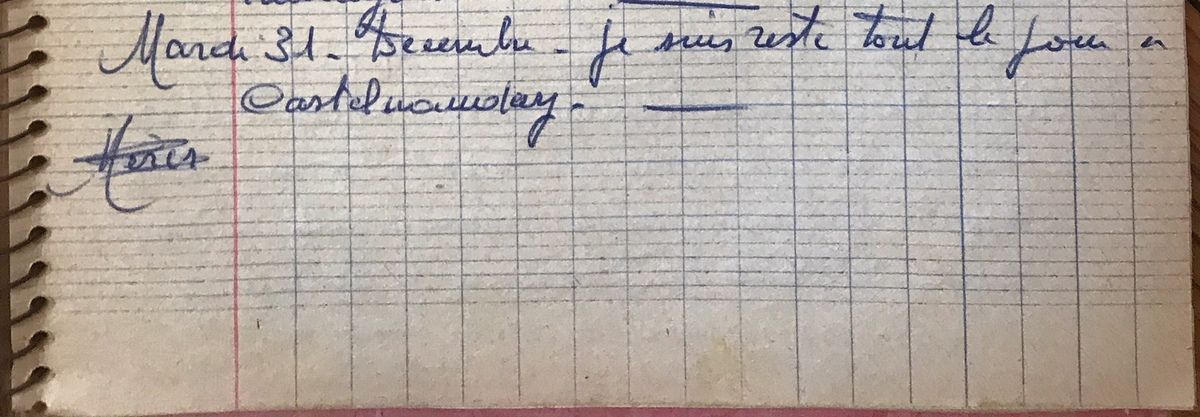 Mardi 31 - Decembre - je suis reste tout le jour a
Castelnaudary -